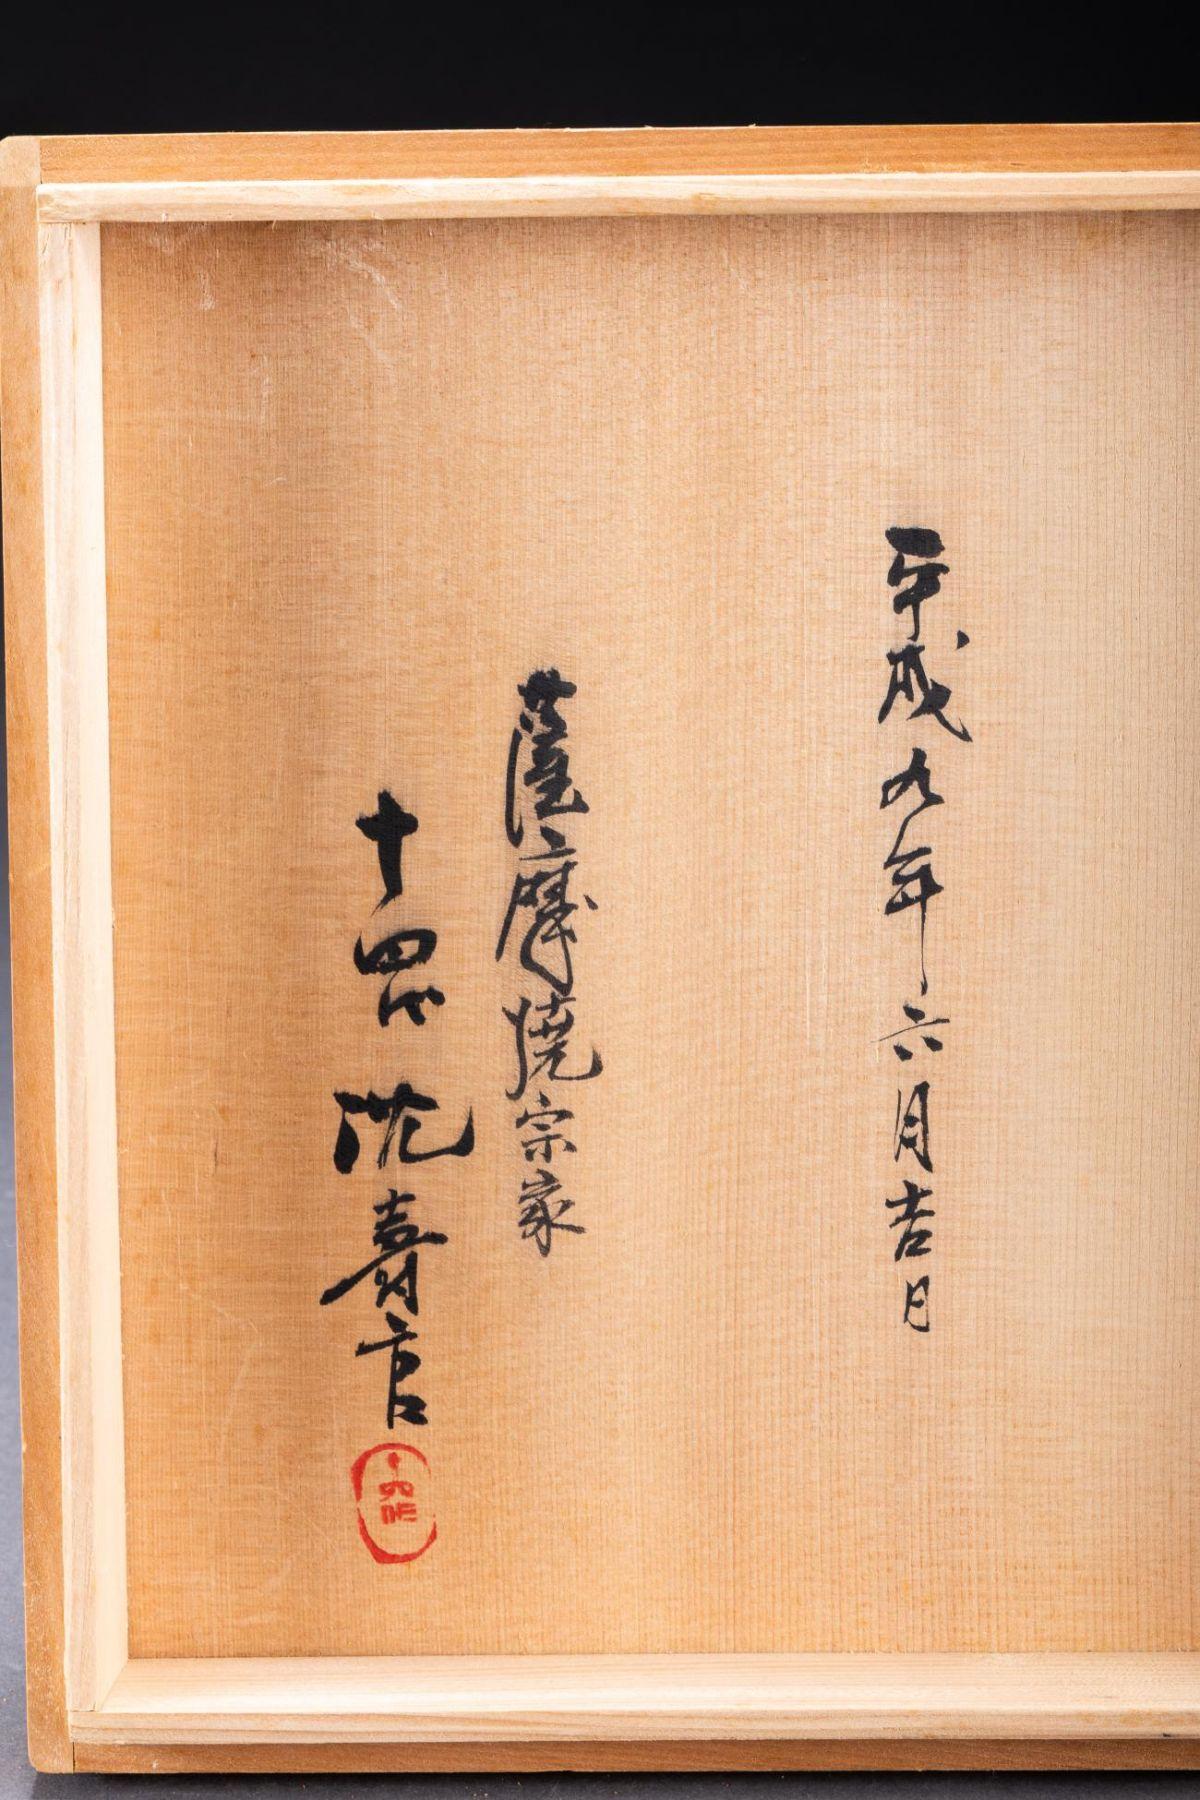 平成九年六月吉日
薩摩焼宗家
十四代沈壽官